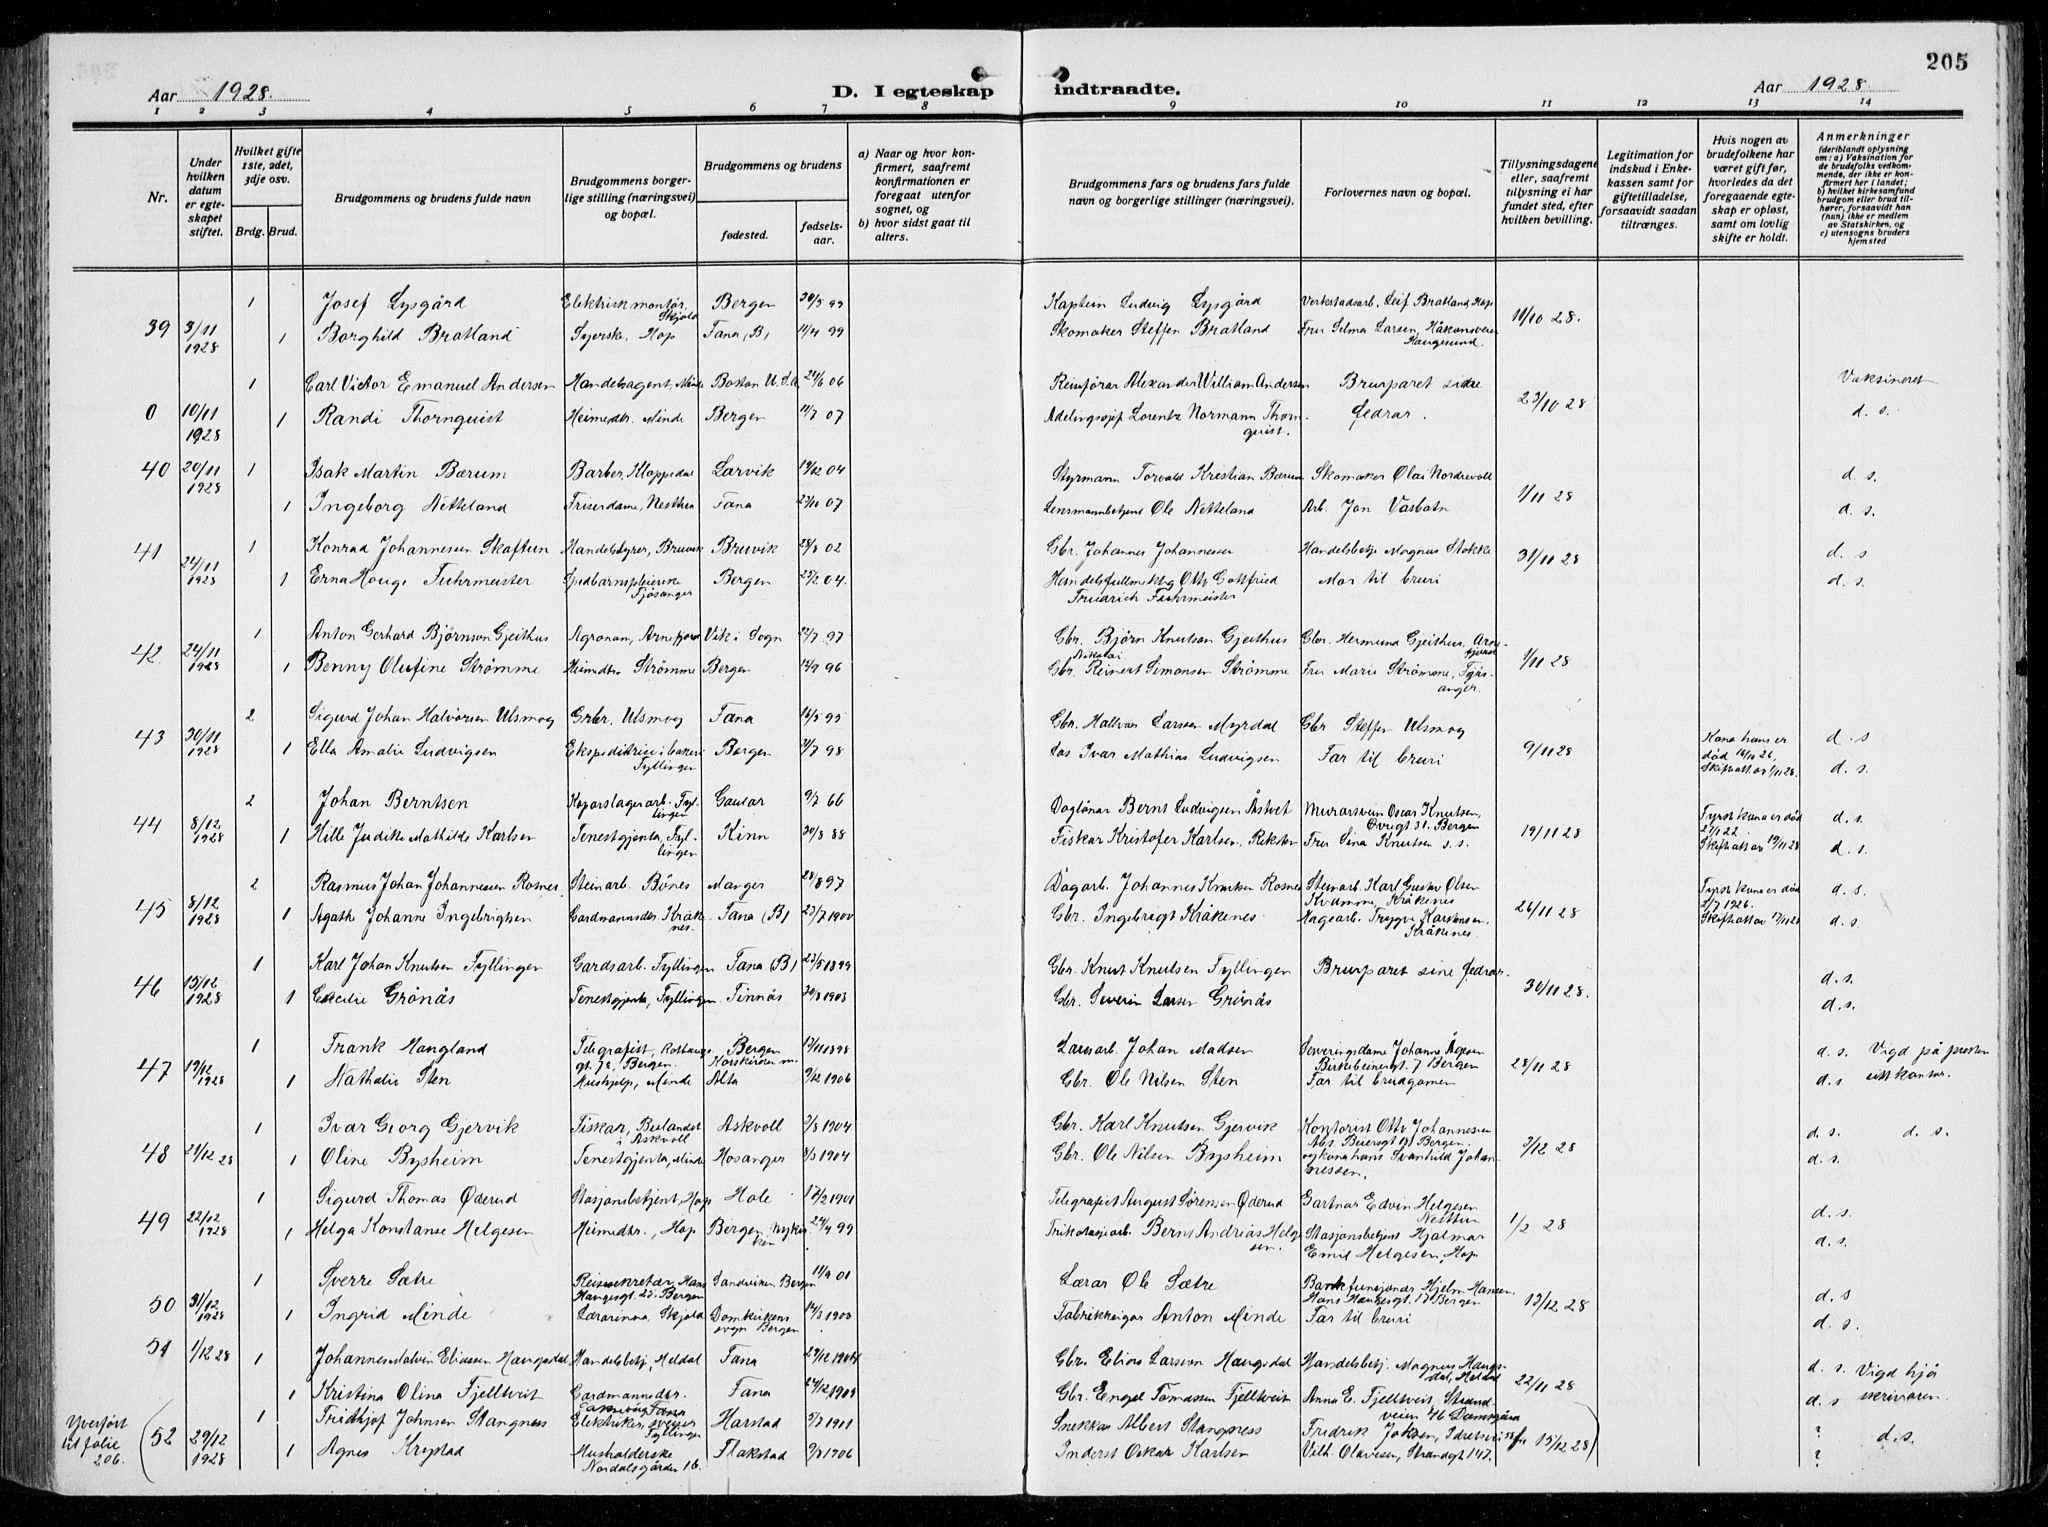 205
Aar 1928.
D. I egteskap indtraadte.
Aar 1928.
1 2 3 4 5 6 7 8 9 10 11 12 13 14
Nr.
Under hvilken datum er egteskapet stiftet.
Hvilket gifte 1ste, 2det, 3dje osv.
Brdg. Brud.
Brudgommens og brudens fulde navn
Brudgommens borgerlige stilling (næringsvei) og bopæl.
Brudgommens og brudens
fødested.
fødselsaar.
a) Naar og hvor konfirmert, saafremt konfirmationen er foregaat utenfor sognet, og
b) hvor sidst gaat til alters.
Brudgommens fars og brudens fars fulde navn og borgerlige stillinger (næringsvei).
Forlovernes navn og bopæl.
Tillysningsdagene eller, saafremt tillysning ei har fundet sted, efter hvilken bevilling.
Legitimation for indskud i Enkekassen samt for giftetilladelse, forsaavidt saadan tiltrænges.
Hvis nogen av brudefolkene har været gift før, hvorledes da det foregaaende egteskap er opløst, samt om lovlig skifte er holdt.
Anmerkninger (deriblandt oplysning om: a) Vaksination for de brudefolks vedkommende, der ikke er konfirmert her i landet; b) hvilket kirkesamfund brudgom eller brud tilhører, forsaavidt han (hun) ikke er medlem av Statskirken, og c) utensogns bruders hjemsted
1 Josef Lysgård Elektriskmontør, Skjold Bergen 30/5 99 Kaptein Ludvig Lysgård Verkstadsarb. Leif Bratland Hop
39 3/11 1928 1 Borghild Bratland Syerske, Hop Fana (B) 11/4 99 Skomaker Steffen Bratland Fru Selma Larsen, Håkonsveien Haugesund. 11/10 28.
1 Carl Victor Emanuel Andersen Handelsagent, Minde Boston U.S.A. 24/6 06 Reiseførar Alexander William Andersen Brurparet sine Vaksineret
0 10/11 1928 1 Randi Thornquist Heimedtr. Minde Bergen 11/7 07 Adelingssjef Lorentz Normann Thornquist. fedrar. 23/10 28 d. s.
40 20/11 1928 1 Isak Martin Bærum Barber, Kloppedal Larvik 19/12 04 Styrmann Torvald Kristian Bærum Skomaker Olai Nordrevoll d. s.
1 Ingeborg Netteland Friserdame, Nesttun Fana 23/10 07 Lensmannbetjent Ole Netteland Arb. Jon Vasbotn 1/11 28 d. s.
41 24/11 1928 1 Konrad Johannessen Skaftun Handelsstyrer, Bruvik Bruvik 28/8 02 Gbr. Johannes Johannessen Handelsbetj. Magnus Stokke 31/11 28 d. s
1 Erna Hauge Fuhrmeister Spedbarnspleierske Fjøsanger Bergen 23/2 04. Handelsfullmektig Otto Gottfried Friedrich Fuhrmeister Mor til bruri d. s.
1 Anton Gerhard Bjørnson Gjeithus Agronom, Arnefjord Vik i Sogn 22/7 97 Gbr. Bjørn Knutson Gjeithus Gbr. Hermund Gjeithus, Arnefjord
42 24/11 1928 1 Benny Olufine Strømme Heimedtr. Strømme Bergen 13/9 96 Gbr. Reinert Nikolai Simonsen Strømme Fru Marie Strømme, Fjøsanger. 1/11 28
2 Sigurd Johan Halvorsen Ulsmog Grbr. Ulsmog Fana 16/5 95 Gbr. Hallvor Larssen Myrdal Gbr. Steffen Ulsmog
43 30/11 1928 1 Ella Amalie Ludvigsen Ekspeditrise i bakeri Fyllingen Bergen 31/7 98 Los Ivar Mathias Ludvigsen Far til bruri 9/11 28 Kona hans er død 16/10 26, Skifteatt av 1/11 28. d. s d. s.
2 Johan Berntsen Koparslagerarb. Fyllingen Gaular 9/7 66 Daglönar Bernt Ludvigsen Åstvet Murarsvein Oscar Knutsen, Øvregt 31. Bergen
44 8/12 1928 1 Hille Judithe Mathilde Karlsen Tenestgjenta, Fyllingen Kinn 30/8 88 Fiskar Kristofer Karlsen, Reksten Fru Sina Knutsen s. s. 19/11 28 Fyrste kona er død 27/1 22 Skifteatt av 19/11 28 d. s. d. s.
2 Rasmus Johan Johannessen Rosnes Steinarb. Bönes Manger 28/8 97 Dagarb. Johannes Knutsen Rosnes Steinarb. Karl Gustav Olsen Kvamme, Kråkenes
45 8/12 1928 1 Agathe Johanne Ingebrigtsen Gardmannsdtr. Kråkenes. Fana (B) 23/7 1900 Gbr. Ingebrigt Kråkenes Hagearb. Trygve Karstensen, Kråkenes 26/11 28 Fyrste kona er død 5/7 1926. Skifteatt av 17/11 28 d. s. d. s.
1 Karl Johan Knutsen Fyllingen Gardsarb. Fyllingen Fana (B) 23/5 1899 Gbr. Knut Knutsen Fyllingen Brurparet sine fedrar. d. s.
46 15/12 1928 1 Cecilie Grönås Tenestgjenta, Fyllingen Finnås 30/8 1903 Gbr. Severin Larsen Grönås 30/11 28. d. s.
1 Frank Haugland Telegrafist, Rothaugsgt. 7a, Bergen Bergen Korskirken m. 13/11 1898 Lausarb. Johan Madsen Serveringsdame Johanne Ågesen Birkebeinergt. 7 Bergen d. s. Vigd på presten
47 19/12 1928 1 Nathalie Sten Hushjelp, Minde Alta 9/12 1906 Gbr. Ole Nilsen Sten Far til brudgomen 28/11 28 d. s sitt kontor.
1 Ivar Georg Gjervik Fiskar, Bulandet i Askvoll Askvoll 2/8 1904 Gbr. Karl Knutsen Gjervik Kontorist Otto Johannesen Abs. Beiersgt 9 Bergen d. s. d. s.
48 21/12 28 1 Oline Bysheim Tenestgjenta, Minde Hosanger 8/3 1904 Gbr. Ole Nilsen Bysheim og kona hans Svanhild Johannessen. 3/12 28 d. s.
1 Sigurd Thomas Øderud Stasjonsbetjent, Hop Hole 17/2 1901 Telegrafist August Sörensen Øderud Gartnar Edvin Helgesen Nesttun
49 22/12 1928 1 Helga Konstanse Helgesen Heimedtr., Hop Bergen, Nykirken 24/4 99 Trikotasjearb. Bernt Andreas Helgesen. Stasjonsbetjent Hjalmar Emil Helgesen, Hop 1/2 28 d. s. d. s.
1 Sverre Sætre Reisesekretær, Hans Haugesgt. 23. Bergen Sandviken Bergen 11/9 01 Lærar Ole Sætre Bankfunsjonær Hjelm Hansen Hans Haugesgt. 17 Bergen
50 31/12 1928 1 Ingrid Minde Lærarinna, Skjold Domkirkens sogn Bergen 14/3 1903 Fabrikkeigar Anton Minde Far til bruri 13/12 28 d. s d. s.
51 1/12 28 1 Johannes Malvin Eliassen Haugsdal Handelsbetj. Heldal Fana 29/12 1904 Gbr. Elias Larsson Haugsdal Handelsbetj. Magnus Haugsdal, Heldal d. s. Vigd hjå
1 Kristina Olina Fjelltveit Gardmannsdtr. Fana Fana 24/12 1903 Gbr. Engel Tomassen Fjelltveit Anna E. Fjelltveit, Strandveien 46 Damsgård 22/11 28 d. s skrivaren.
Yverført til folie 206. 1 Fridthjof Johnsen Stangnes Elektriker, Fyllingen Harstad 3/7 1901 Snekkar Albert Stangness Fredrik ?
(52 29/12 1928 1 Agnes Husholderske Nordalsgården 16. Flakstad 9/8 1906 Inderst Oskar Karlsen Vilh. Olavesen, Strandgt 147. 15/12 28) ? d. s.